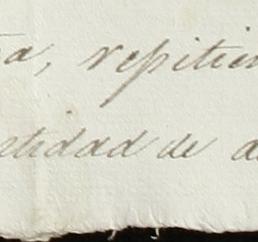 ta, repitien
ntidad de a